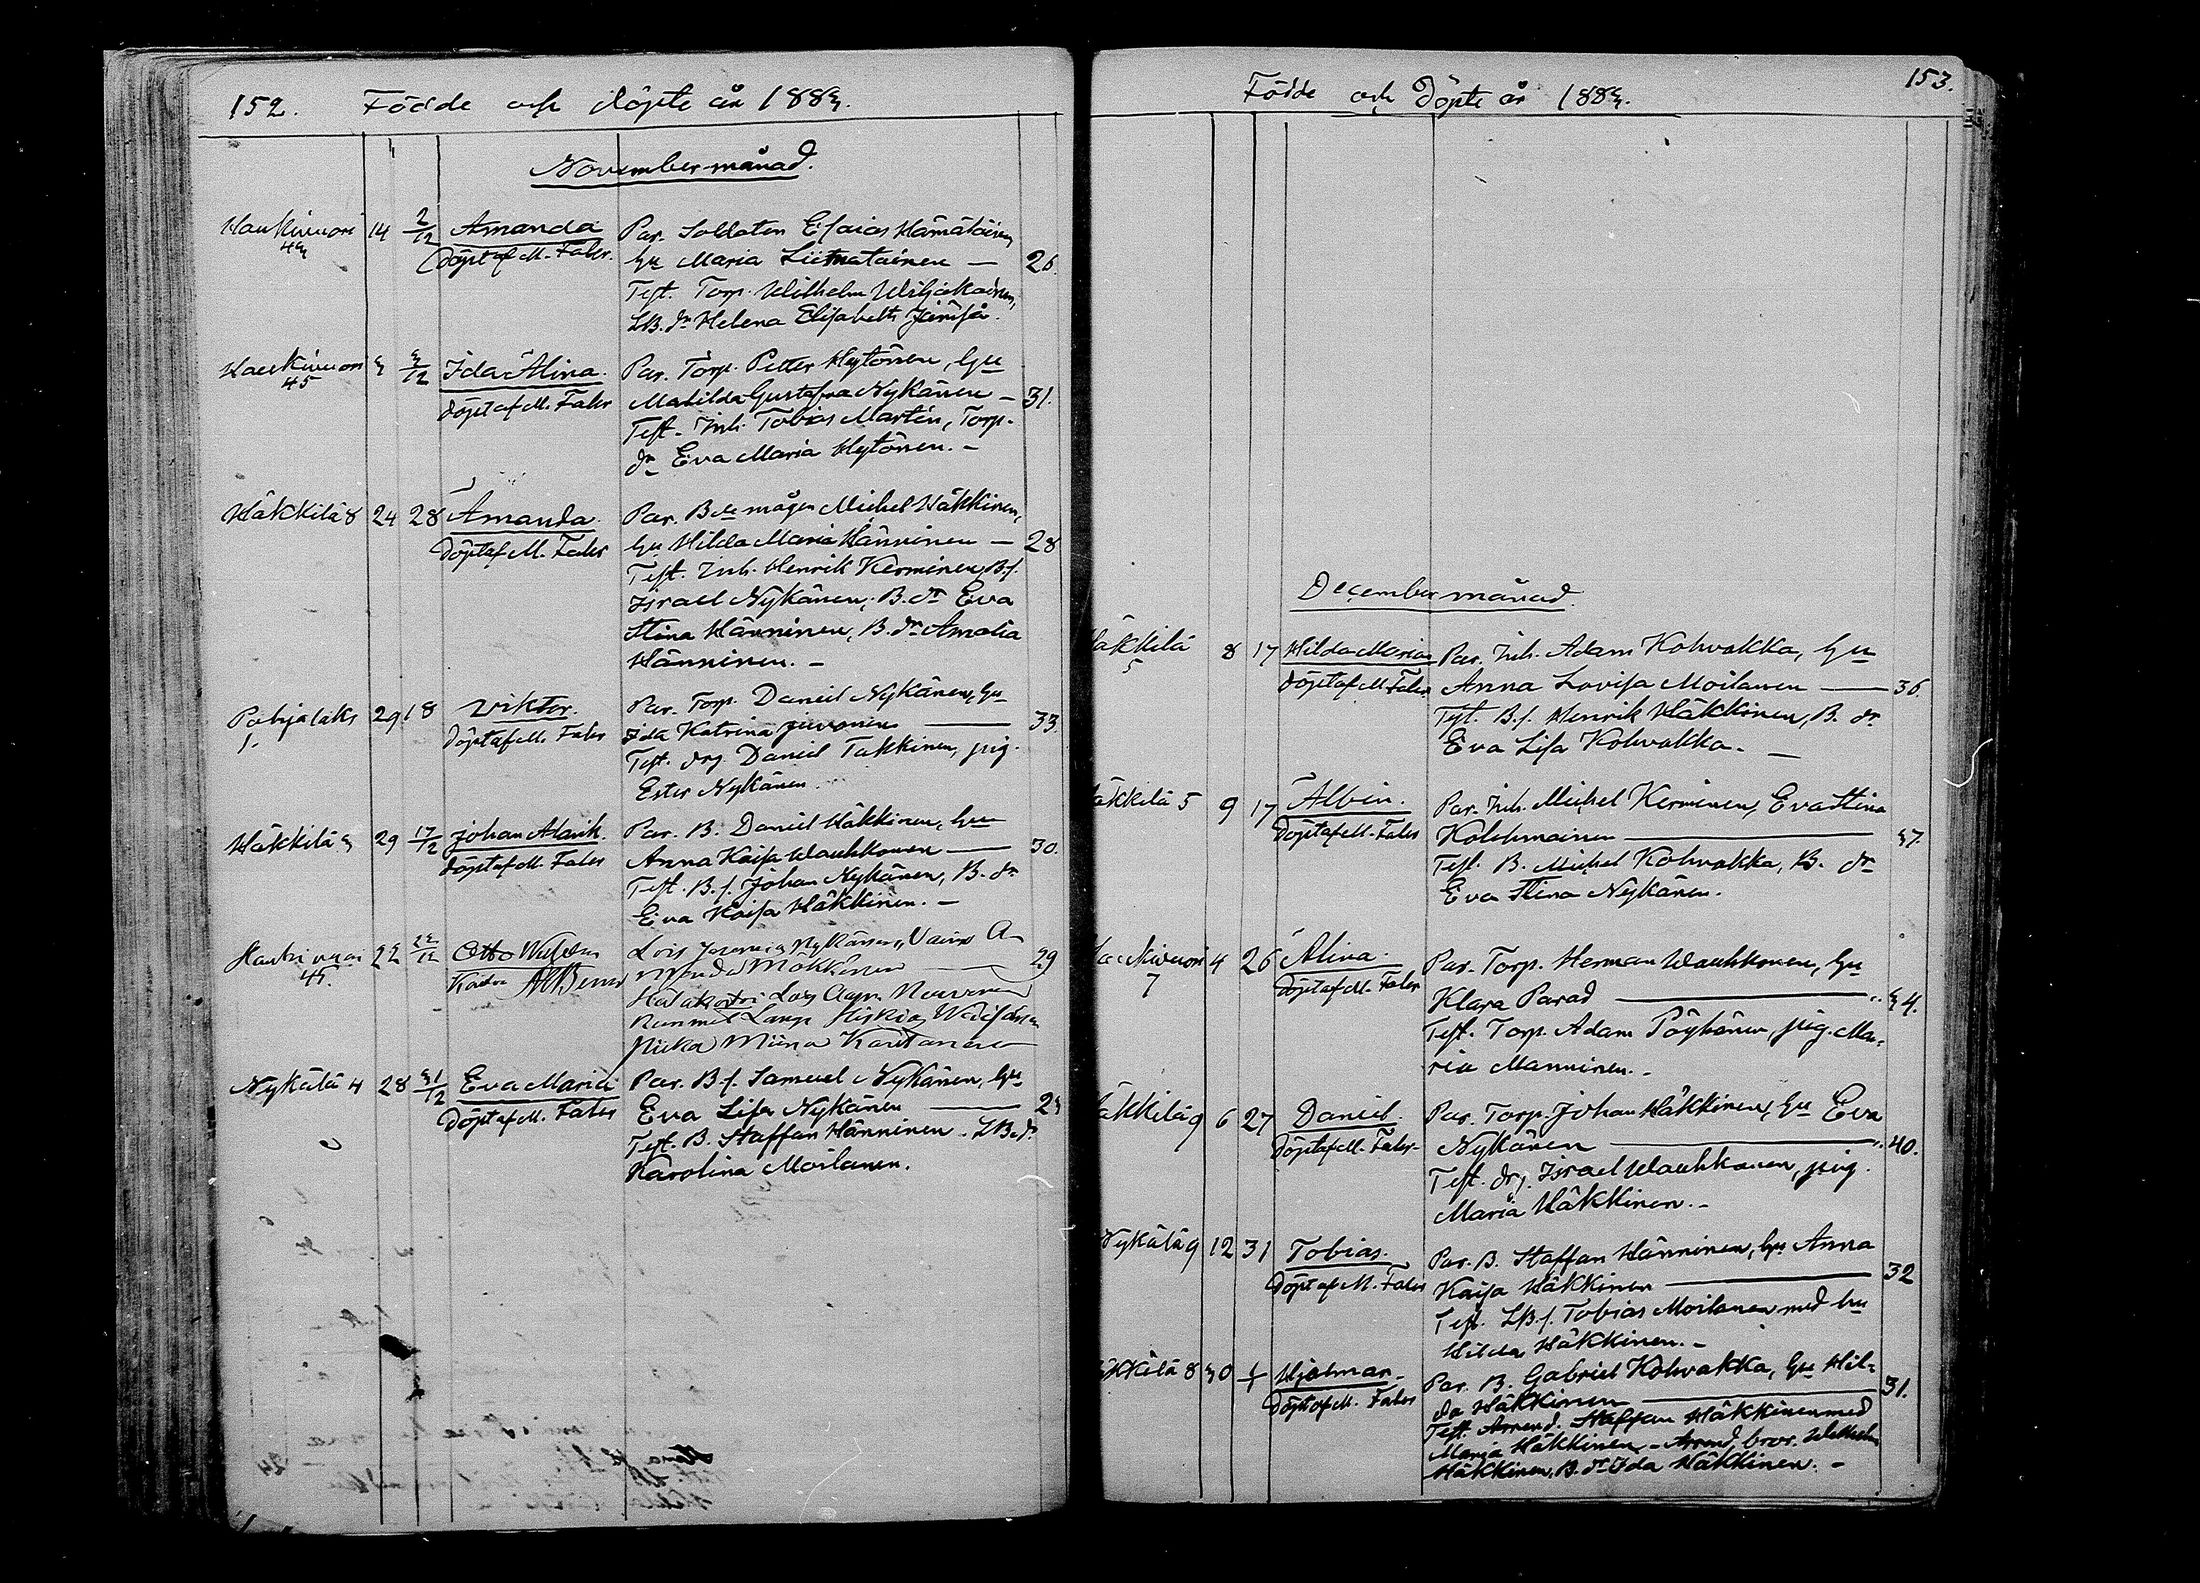 152. Födde och döpte år 1883.
November månad.
Haukivuori 14 2/12 Amanda Par. Soldaten Esaias Hämäläinen,
43 Döpt af M. Faler. hu Maria Liimatainen — 26.
Test. Torp. Wilhelm Wiljakainen,
LB. dr Helena Elisabeth Jäntsä.
Haukivuori 3 3/12 Ida Alina. Par. Torp. Petter Hytönen, hu
45 döpt af M. Faler Matilda Gustafva Nykänen — 31.
Test. Inh. Tobias Martin, Torp.
dr Eva Maria Hytönen. —
Häkkilä 8 24 28 Amanda. Par. B de mågen Michel Häkkinen,
Döpt af M. Faler hu Hilda Maria Hänninen — 28
Test. Inh. Henrik Kerminen, B.s.
Israel Nykänen, B. dr Eva
Stina Hänninen, B. dr Amalia
Hänninen. —
Pohjalaks 29 18 Viktor. Par. Torp. Daniel Nykänen, hu
1. Döpt af M. Faler Ida Katrina Juvonen — 33.
Test. drg. Daniel Takkinen, pig.
Ester Nykänen.
Häkkilä 3 29 17/12 Johan Alarik. Par. B. Daniel Häkkinen, hu
döpt af M. Faler Anna Kaisa Wauhkonen — 30.
Test. B.s. Johan Nykänen, B. dr
Eva Kaisa Häkkinen. —
Haukivuori 22 Otto Wilhelm Lois Nykänen, Vaimo A-
45. manda Häkkinen — 29
Miina
Nykälä 4 28 31/12 Eva Maria Par. B.s. Samuel Nykänen, hu
Döpt af M. Faler Eva Lisa Nykänen — 23
Test. B. Staffan Hänninen. LB. dr
Karolina Moilanen.
Födde och Döpte år 1883. 153.
December månad.
äkkilä 8 17 Hilda Maria Par. Inh. Adam Kohvakka, hu
5 döpt af M. Faler Anna Lovisa Moilanen — 36.
Tst. B.s. Henrik Häkkinen, B. dr
Eva Lisa Kohvakka. —
äkkilä 5 9 17 Albin. Par. Inh. Michel Kerminen, Eva Stina
Döpt af M. Faler Kolehmainen — 37.
Test. B. Michel Kohvakka, B. dr
Eva Stina Nykänen.
aukivuori 4 26 Alina. Par. Torp. Herman Wauhkonen, hu
7 Döpt af M. Faler Klara Parad — 34.
Test. Torp. Adam Pöyhönen, pig. Ma-
ria Manninen. —
äkkilä 9 6 27 Daniel. Par. Torp. Johan Häkkinen, hu Eva
Döpt af M. Faler. Nykänen — 40.
Test. drg. Israel Wauhkonen, pig.
Maria Häkkinen. —
Nykälä 9 12 31 Tobias. Par. B. Staffan Hänninen, hu Anna
Döpt af M. Faler Kaisa Häkkinen — 32
Test. LB.s. Tobias Moilanen med hu
Hilda Häkkinen. —
äkkilä 8 30 1/1 Hjalmar. Par. B. Gabriel Kohvakka, hu Hil-
Döpt af M. Faler da Häkkinen — 31.
Test. Arrend. Staffan Häkkinen med
Maria Häkkinen. — Arrend. bror. Wilhelm
Häkkinen, B. dr Ida Häkkinen. —